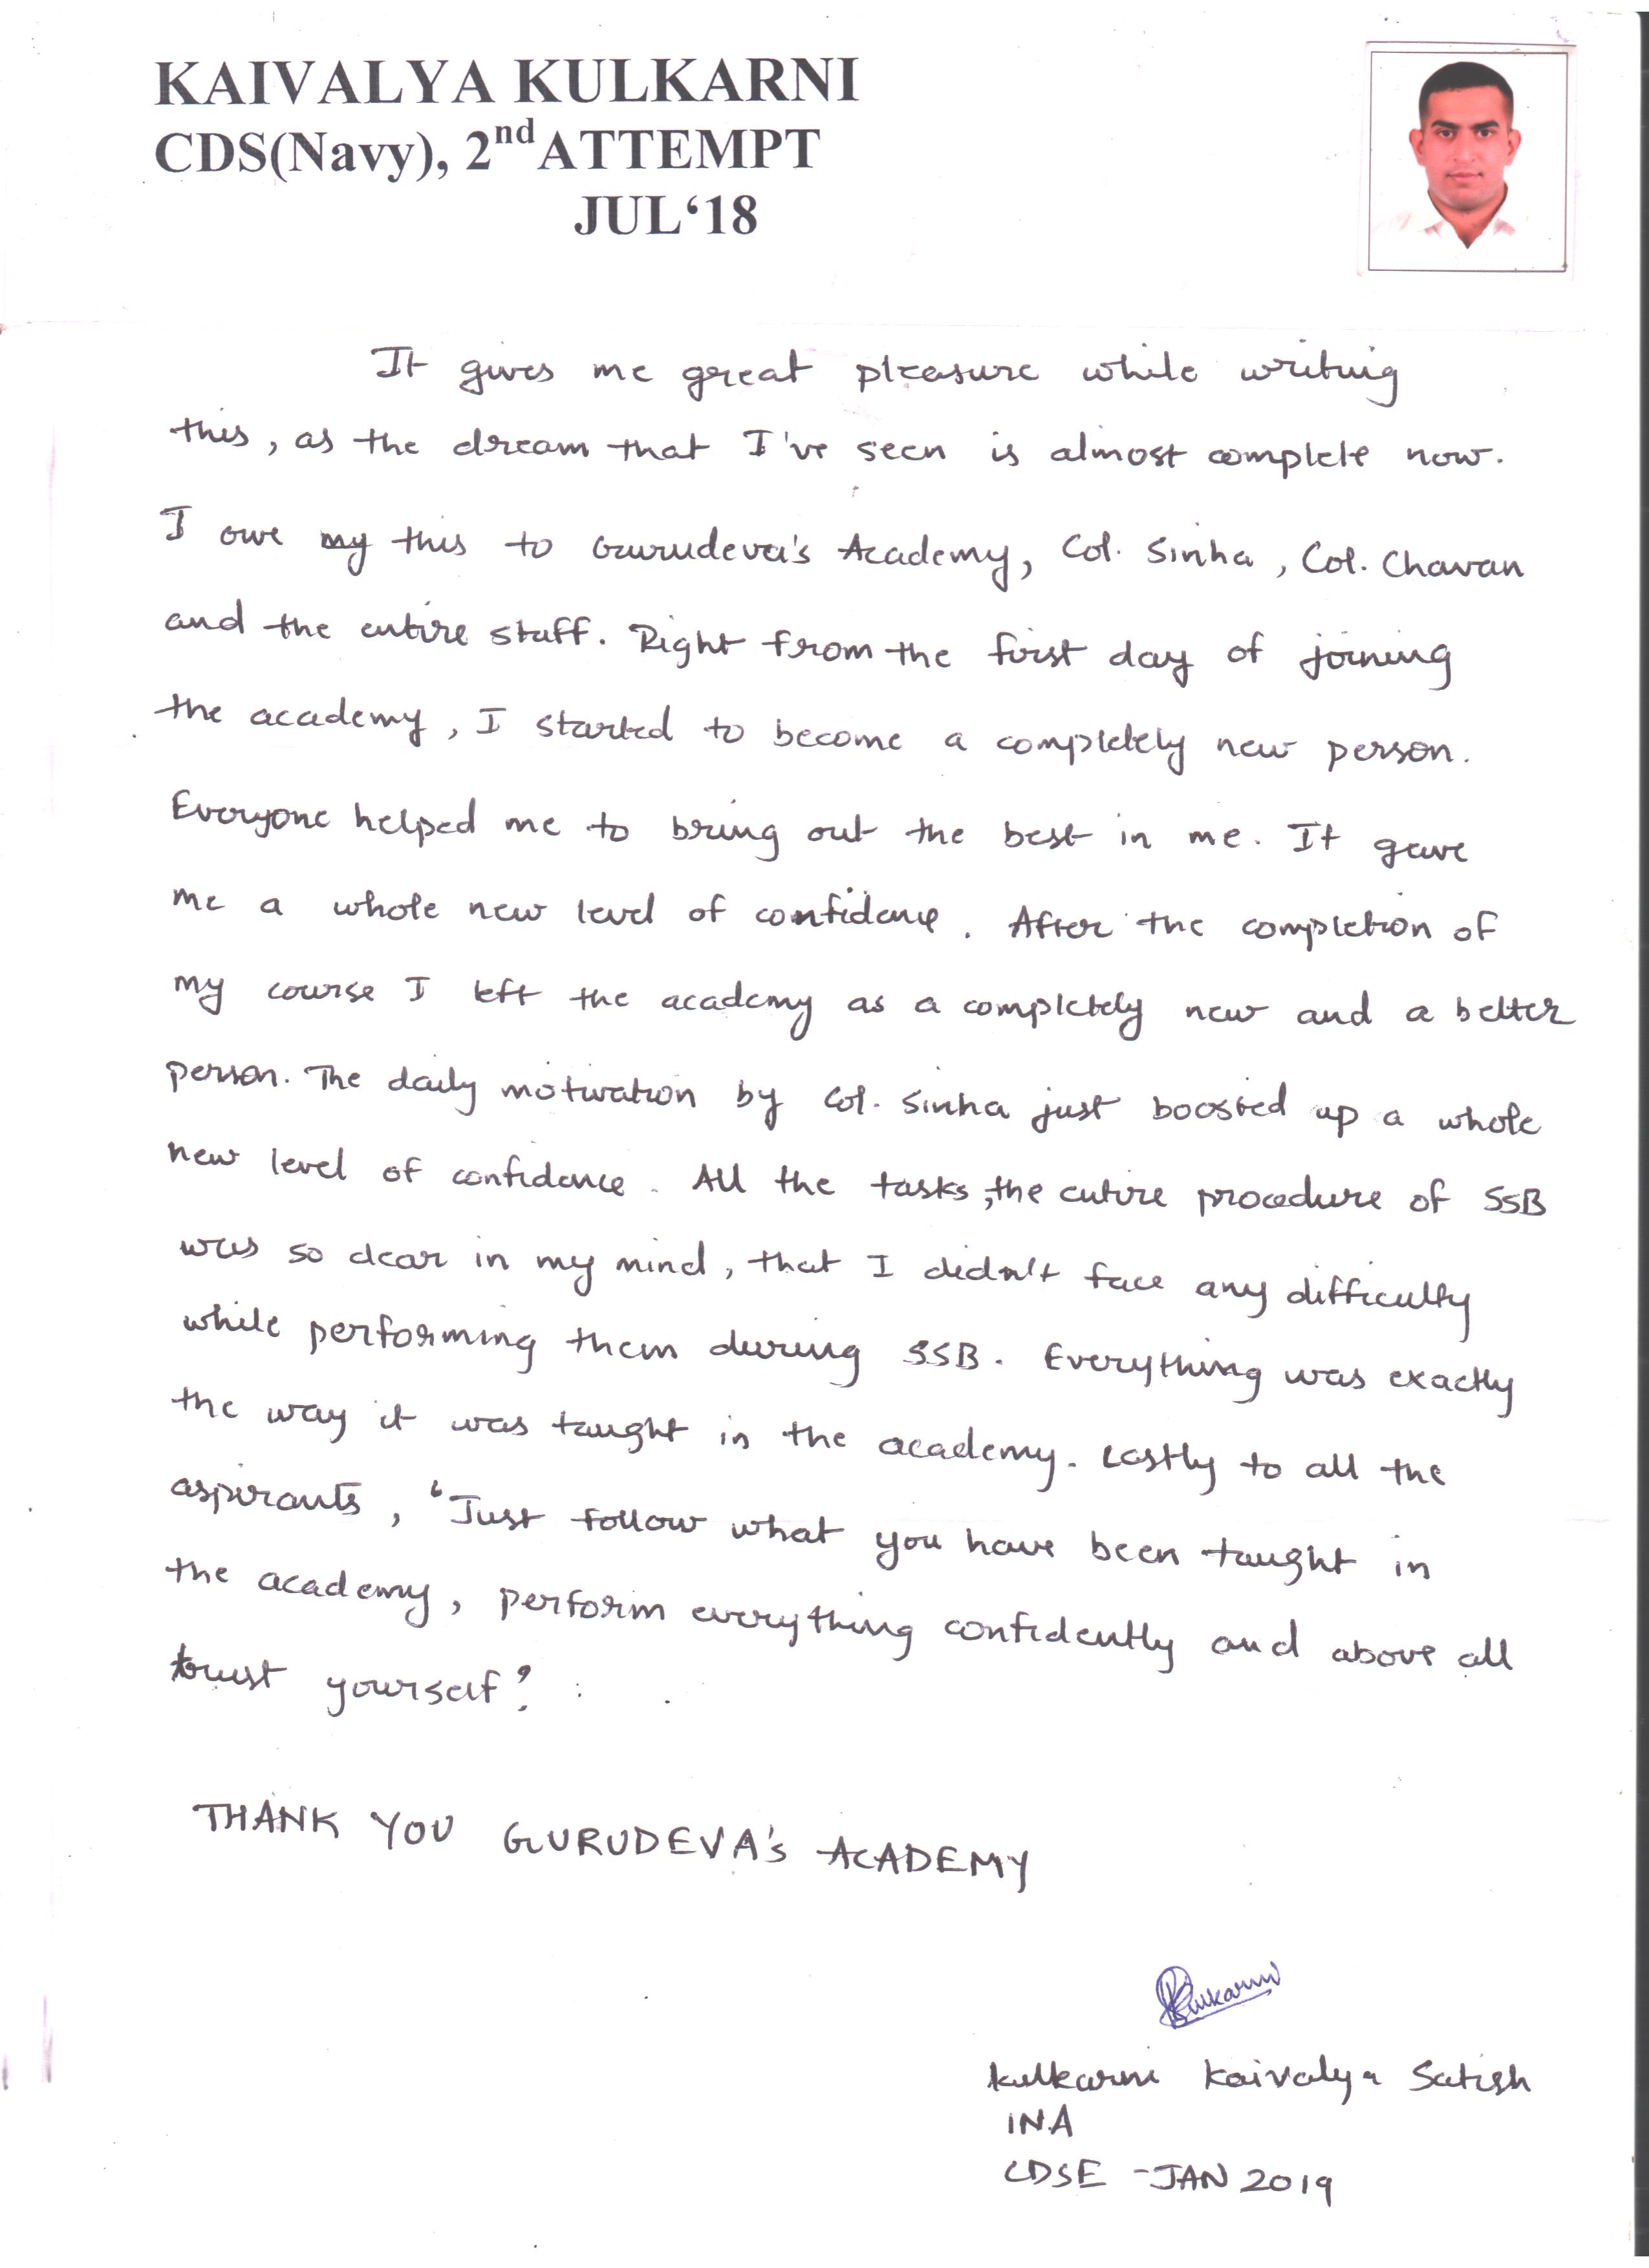 KAIVALYA KULKARNI
CDS(Navy), 2nd ATTEMPT
JUL‘18
It gives me great pleasure while writing
this, as the dream that I've seen is almost complete now.
I owe my this to Gurudeva's Academy, Col. Sinha, Col. Chavan
and the entire staff. Right from the first day of joining
the academy, I started to become a completely new person.
Everyone helped me to bring out the best in me. It gave
me a whole new level of confidence. After the completion of
my course I left the academy as a completely new and a better
person. The daily motivation by Col. Sinha just boosted up a whole
new level of confidence. All the tasks, the entire procedure of SSB
was so clear in my mind, that I didn't face any difficulty
while performing them during SSB. Everything was exactly
the way it was taught in the academy. Lastly to all the
aspirants, "Just follow what you have been taught in
the academy, perform everything confidently and above all
trust yourself".
THANK YOU GURUDEVA's ACADEMY
Kulkarni
Kulkarni Kaivalya Satish
INA
CDSE - JAN 2019